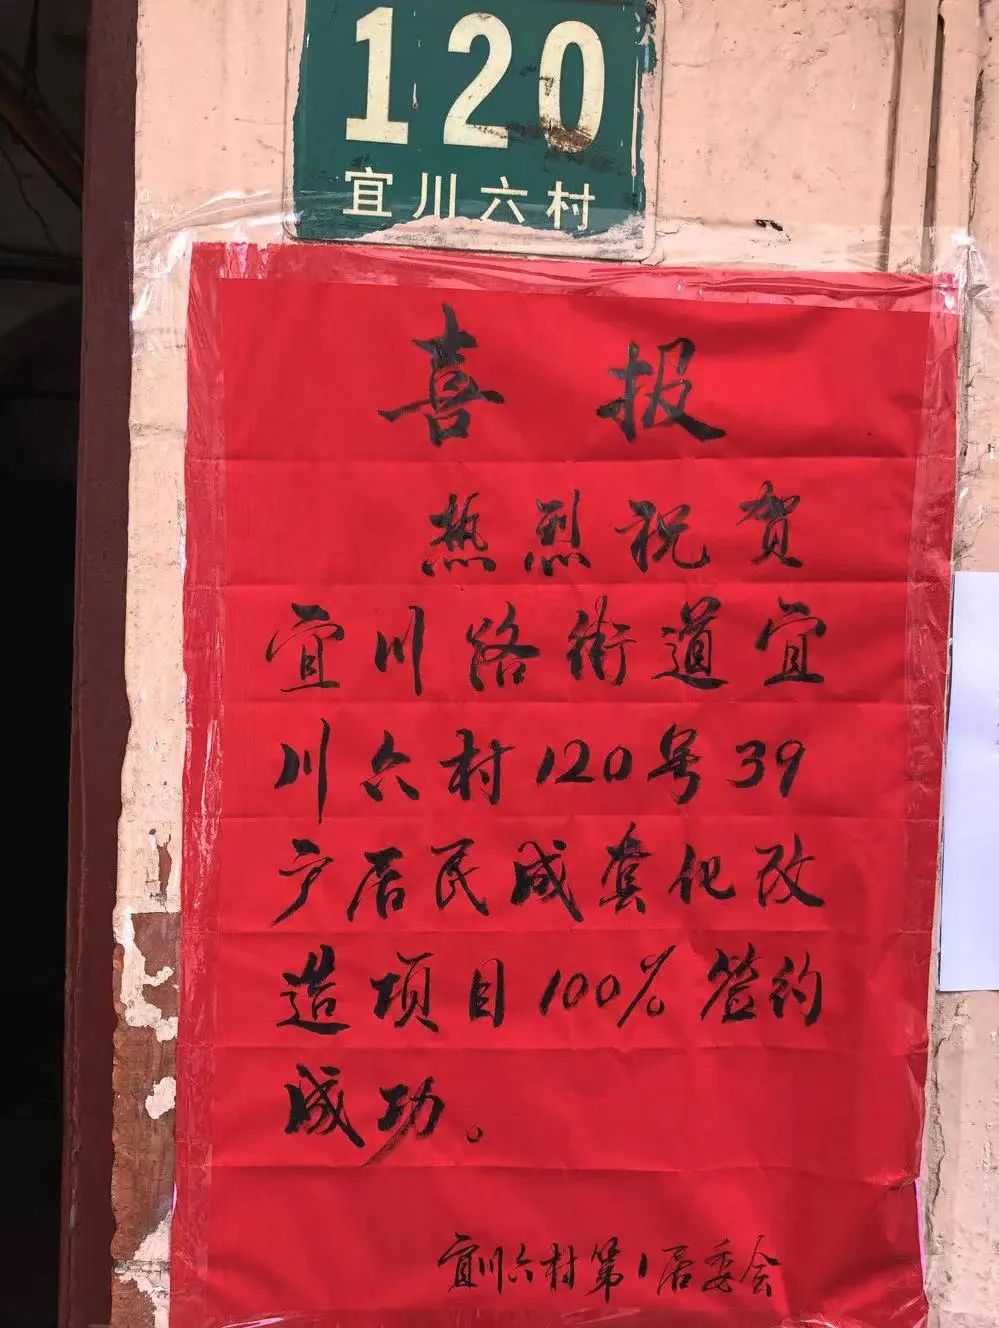 120
宜川六村
喜报
热烈祝贺
宜川路街道宜
川六村120号39
户居民成套化改
造项目100%签约
成功。
宜川六村第1居委会